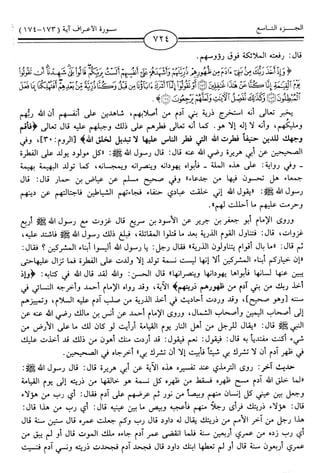 الجزء التاسع
٧٢٤
سورة الأعراف آية (١٧٣-١٧٤)
قال: رفعته الملائكة فوق رؤوسهم.
يخبر تعالى أنه استخرج ذرية بني آدم من أصلابهم، شاهدين على أنفسهم أن الله ربهم
ومليكهم، وأنه لا إله إلا هو. كما أنه تعالى فطرهم على ذلك وجبلهم عليه قال تعالى ﴿فأقم
وجهك للدين حنيفاً فطرت الله التي فطر الناس عليها لا تبديل لخلق الله﴾ [الروم: ٣٠]، وفي
الصحيحين عن أبي هريرة رضي الله عنه قال: قال رسول الله ﷺ: «كل مولود يولد على الفطرة
- وفي رواية: على هذه الملة - فأبواه يهودانه وينصرانه ويمجسانه، كما تولد البهيمة بهيمة
جمعاء هل تحسون فيها من جدعاء» وفي صحيح مسلم عن عياض بن حمار قال: قال
رسول الله ﷺ: «يقول الله إني خلقت عبادي حنفاء فجاءتهم الشياطين فاجتالتهم عن دينهم
وحرمت عليهم ما أحللت لهم».
وروى الإمام أبو جعفر بن جرير عن الأسود بن سريع قال غزوت مع رسول الله ﷺ أربع
غزوات، قال: فتناول القوم الذرية بعد ما قتلوا المقاتلة، فبلغ ذلك رسول الله ﷺ فاشتد عليه،
ثم قال: «ما بال أقوام يتناولون الذرية» فقال رجل: يا رسول الله أليسوا أبناء المشركين؟ فقال:
«إن خياركم أبناء المشركين ألا إنها ليست نسمة تولد إلا ولدت على الفطرة فما تزال عليها حتى
يبين عنها لسانها فأبواها يهودانها وينصرانها» قال الحسن: والله لقد قال الله في كتابه: ﴿وإذ
أخذ ربك من بني آدم من ظهورهم ذريتهم﴾ الآية، وقد رواه الإمام أحمد وأخرجه النسائي في
سننه [وهو صحيح]، وقد وردت أحاديث في أخذ الذرية من صلب آدم عليه السلام، وتمييزهم
إلى أصحاب اليمين وأصحاب الشمال، وروى الإمام أحمد عن أنس بن مالك رضي الله عنه عن
النبي ﷺ قال: «يقال للرجل من أهل النار يوم القيامة أرأيت لو كان لك ما على الأرض من
شيء أكنت مفتدياً به قال: فيقول: نعم فيقول: قد أردت منك أهون من ذلك قد أخذت عليك
في ظهر آدم أن لا تشرك بي شيئاً فأبيت إلا أن تشرك بي» أخرجاه في الصحيحين.
حديث آخر: روى الترمذي عند تفسيره هذه الآية عن أبي هريرة قال: قال رسول الله ﷺ:
«لما خلق الله آدم مسح ظهره فسقط من ظهره كل نسمة هو خالقها من ذريته إلى يوم القيامة
وجعل بين عيني كل إنسان منهم وبيصاً من نور ثم عرضهم على آدم فقال: أي رب من هؤلاء
قال: هؤلاء ذريتك فرأى رجلاً منهم فأعجبه وبيص ما بين عينيه قال: أي رب من هذا قال:
هذا رجل من آخر الأمم من ذريتك يقال له داود قال رب وكم جعلت عمره قال ستين سنة قال
أي رب زده من عمري أربعين سنة فلما انقضى عمر آدم جاءه ملك الموت قال أو لم يبق من
عمري أربعون سنة قال أو لم تعطها ابنك داود قال فجحد آدم فجحدت ذريته ونسي آدم فنسيت